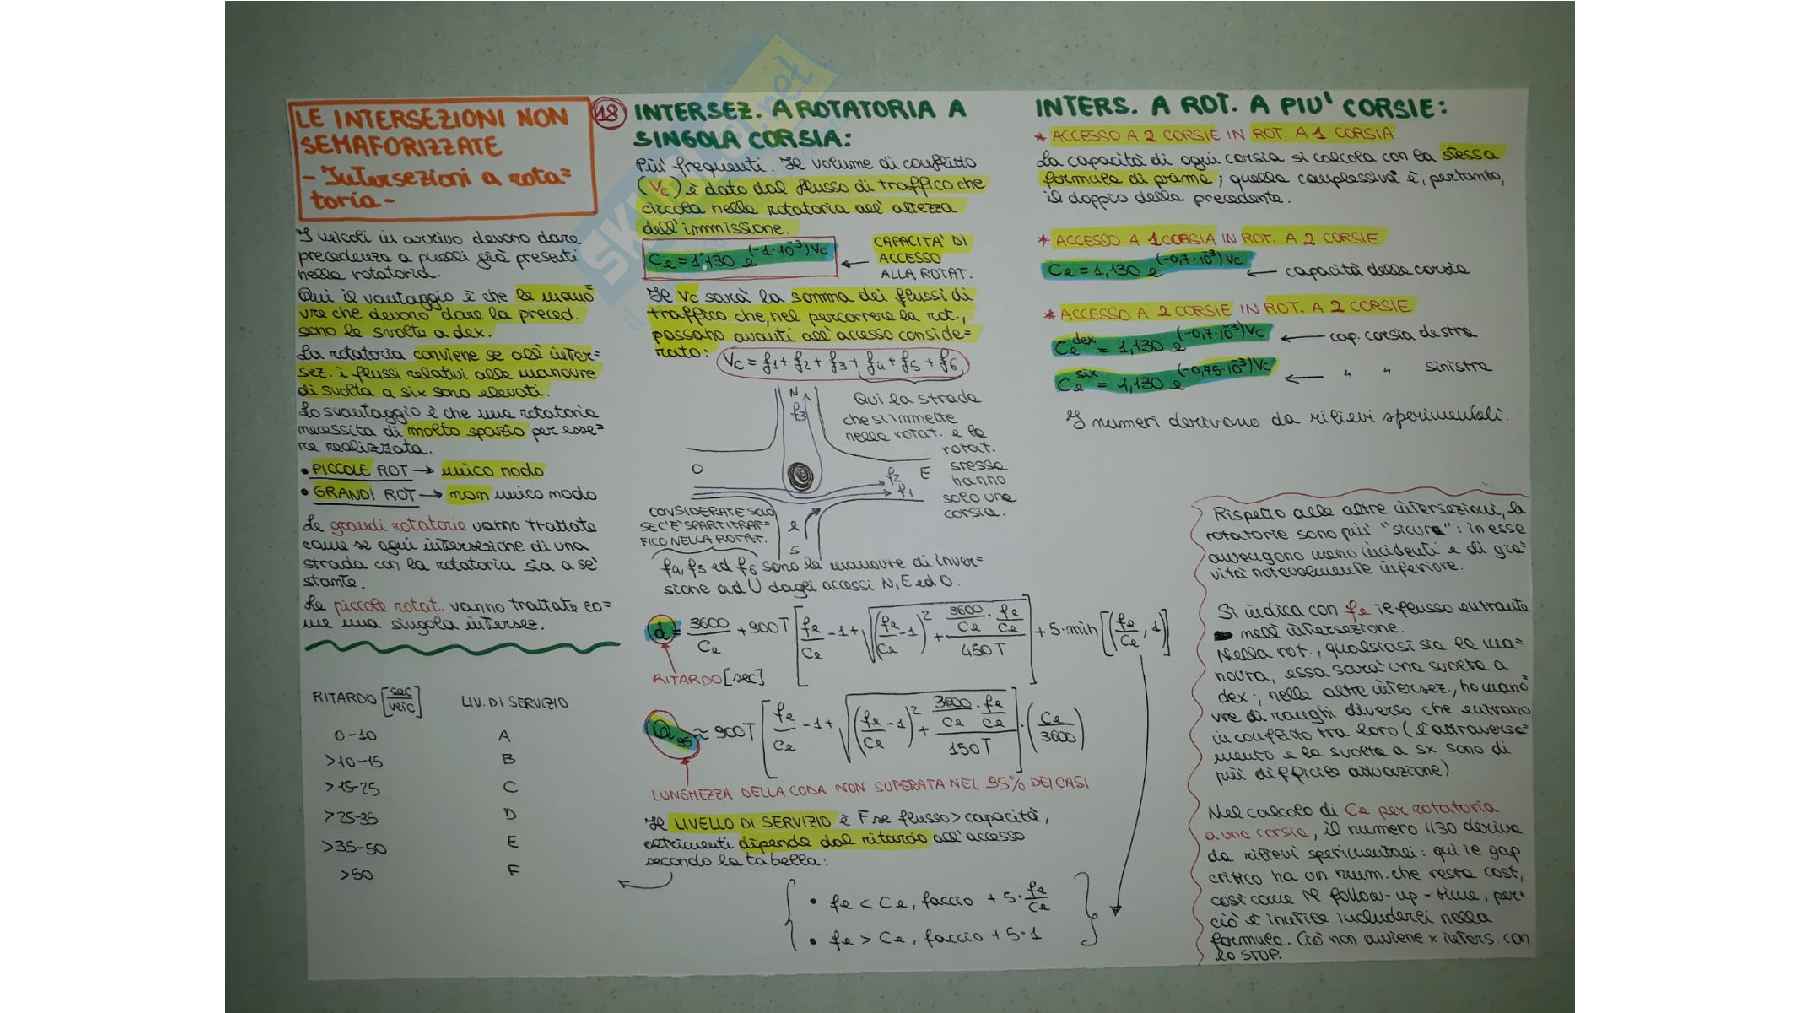 LE INTERSEZIONI NON
SEMAFORIZZATE
- Intersezioni a rota=
toria -
I veicoli in arrivo devono dare
precedenza a quelli già presenti
nella rotatoria.
Qui il vantaggio è che le mano=
vre che devono dare la preced.
sono le svolte a dex.
La rotatoria conviene se all'inter=
sez. i flussi relativi alle manovre
di svolta a six sono elevati.
Lo svantaggio è che una rotatoria
necessita di molto spazio per esse=
re realizzata.
• PICCOLE ROT → unico nodo
• GRANDI ROT → non unico nodo
Le grandi rotatorie vanno trattate
come se ogni intersezione di una
strada con la rotatoria sia a se'
stante.
Le piccole rotat. vanno trattate co=
me una singola intersez.
RITARDO [sec/veic] LIV. DI SERVIZIO
0-10 A
>10-15 B
>15-25 C
>25-35 D
>35-50 E
>50 F
18
INTERSEZ. A ROTATORIA A
SINGOLA CORSIA:
Più frequenti. Il volume di conflitto
(Vc) è dato dal flusso di traffico che
circola nella rotatoria all'altezza
dell'immissione.
Ce = 1,130 e^(-1·10^-3)Vc ← CAPACITA' DI
ACCESSO
ALLA ROTAT.
Il Vc sarà la somma dei flussi di
traffico che, nel percorrere la rot.,
passano avanti all'accesso conside=
rato: Vc = f1 + f2 + f3 + f4 + f5 + f6
N
f3
O
E
f2
f1
e
S
Qui la strada
che si immette
nella rotat. e la
rotat.
stessa
hanno
solo una
corsia.
CONSIDERATE SOLO
SE C'E' SPARTITRAF=
FICO NELLA ROTAT.
f4, f5 ed f6 sono le manovre di inver=
sione ad U dagli accessi N, E ed O.
d = 3600/Ce + 900T [fe/Ce - 1 + √((fe/Ce - 1)² + (3600/Ce · fe/Ce)/450T)] + 5·min [(fe/Ce, 1)]
RITARDO [sec]
Q95 ≈ 900T [fe/Ce - 1 + √((fe/Ce - 1)² + (3600/Ce · fe/Ce)/150T)] · (Ce/3600)
LUNGHEZZA DELLA CODA NON SUPERATA NEL 95% DEI CASI
Il LIVELLO DI SERVIZIO è F se flusso > capacità,
altrimenti dipende dal ritardo all'accesso
secondo la tabella:
• fe < Ce, faccio + 5·fe/Ce
• fe > Ce, faccio + 5·1
INTERS. A ROT. A PIU' CORSIE:
* ACCESSO A 2 CORSIE IN ROT. A 1 CORSIA
La capacità di ogni corsia si calcola con la stessa
formula di prima; quella complessiva è, pertanto,
il doppio della precedente.
* ACCESSO A 1 CORSIA IN ROT. A 2 CORSIE
Ce = 1,130 e^(-0,7·10^-3)Vc ← capacità della corsia
* ACCESSO A 2 CORSIE IN ROT. A 2 CORSIE
Ce^dex = 1,130 e^(-0,7·10^-3)Vc ← cap. corsia destra
Ce^six = 1,130 e^(-0,75·10^-3)Vc ← " " sinistra
I numeri derivano da rilievi sperimentali.
Rispetto alle altre intersezioni, le
rotatorie sono più "sicure": in esse
avvengono meno incidenti e di gra=
vità notevolmente inferiore.
Si indica con fe il flusso entrante
nell'intersezione.
Nella rot., qualsiasi sia la ma=
novra, essa sarà una svolta a
dex; nelle altre intersez., ho mano=
vre di ranghi diverso che entrano
in conflitto tra loro (l'attraversa=
mento e la svolta a sx sono di
più difficile attuazione).
Nel calcolo di Ce per rotatoria
a una corsia, il numero 1130 deriva
da rilievi sperimentali: qui il gap
critico ha un num. che resta cost,
così come il follow-up-time, per=
ciò è inutile includerli nella
formula. Ciò non avviene x inters. con
lo STOP.